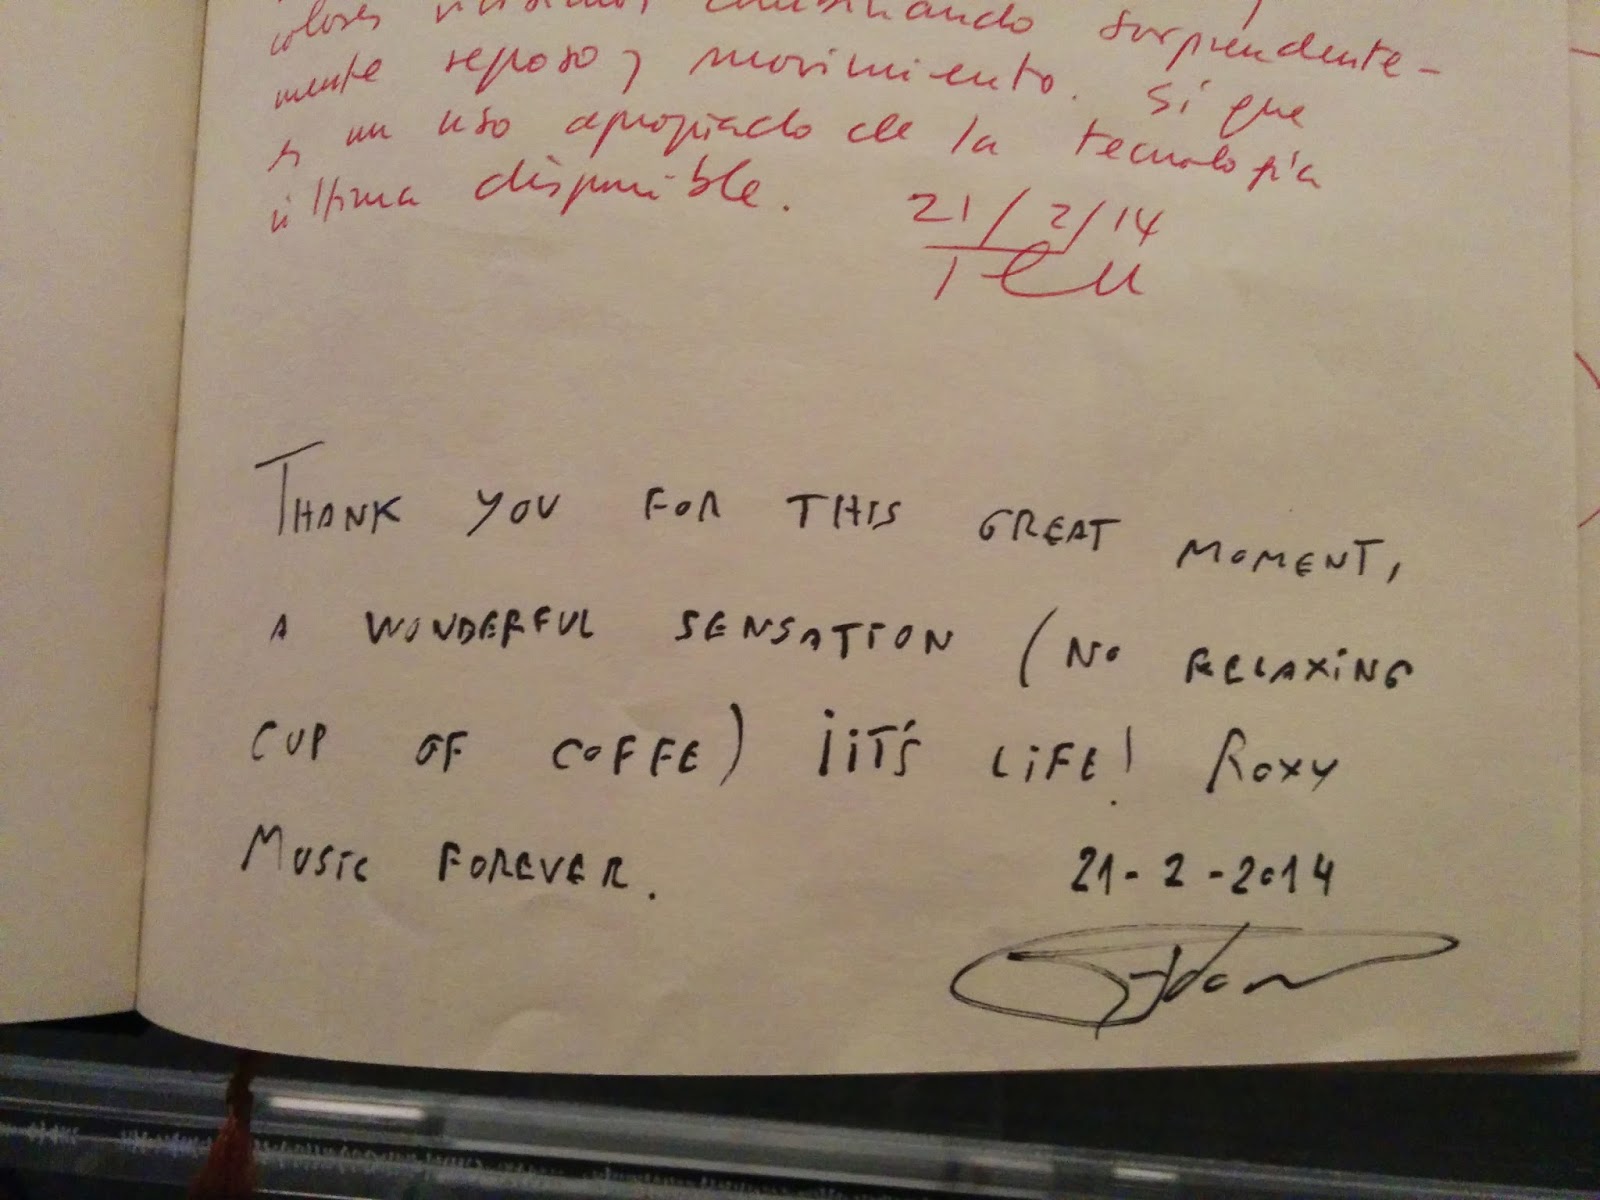 colores vivísimos combinando sorprendente-
mente reposo y movimiento. Sí que
es un uso apropiado de la tecnología
última disponible.
21/2/14
THANK YOU FOR THIS GREAT MOMENT,
A WONDERFUL SENSATION (NO RELAXING
CUP OF COFFE) ¡IT'S LIFE! ROXY
MUSIC FOREVER.
21-2-2014